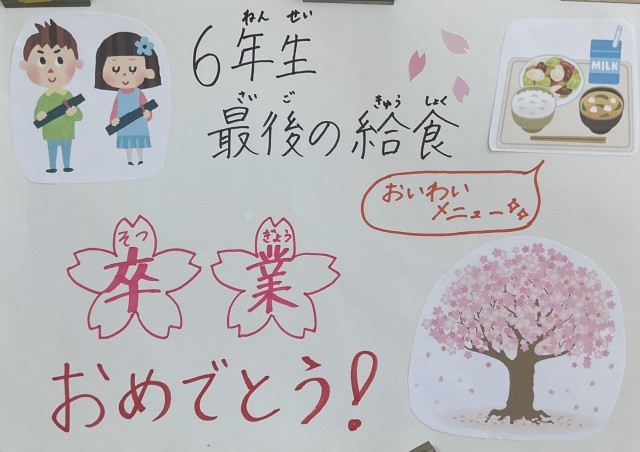 ねん せい
6年生
さい ご きゅう しょく
最後の給食
MILK
おいわい
メニュー
そつ ぎょう
卒業
おめでとう!